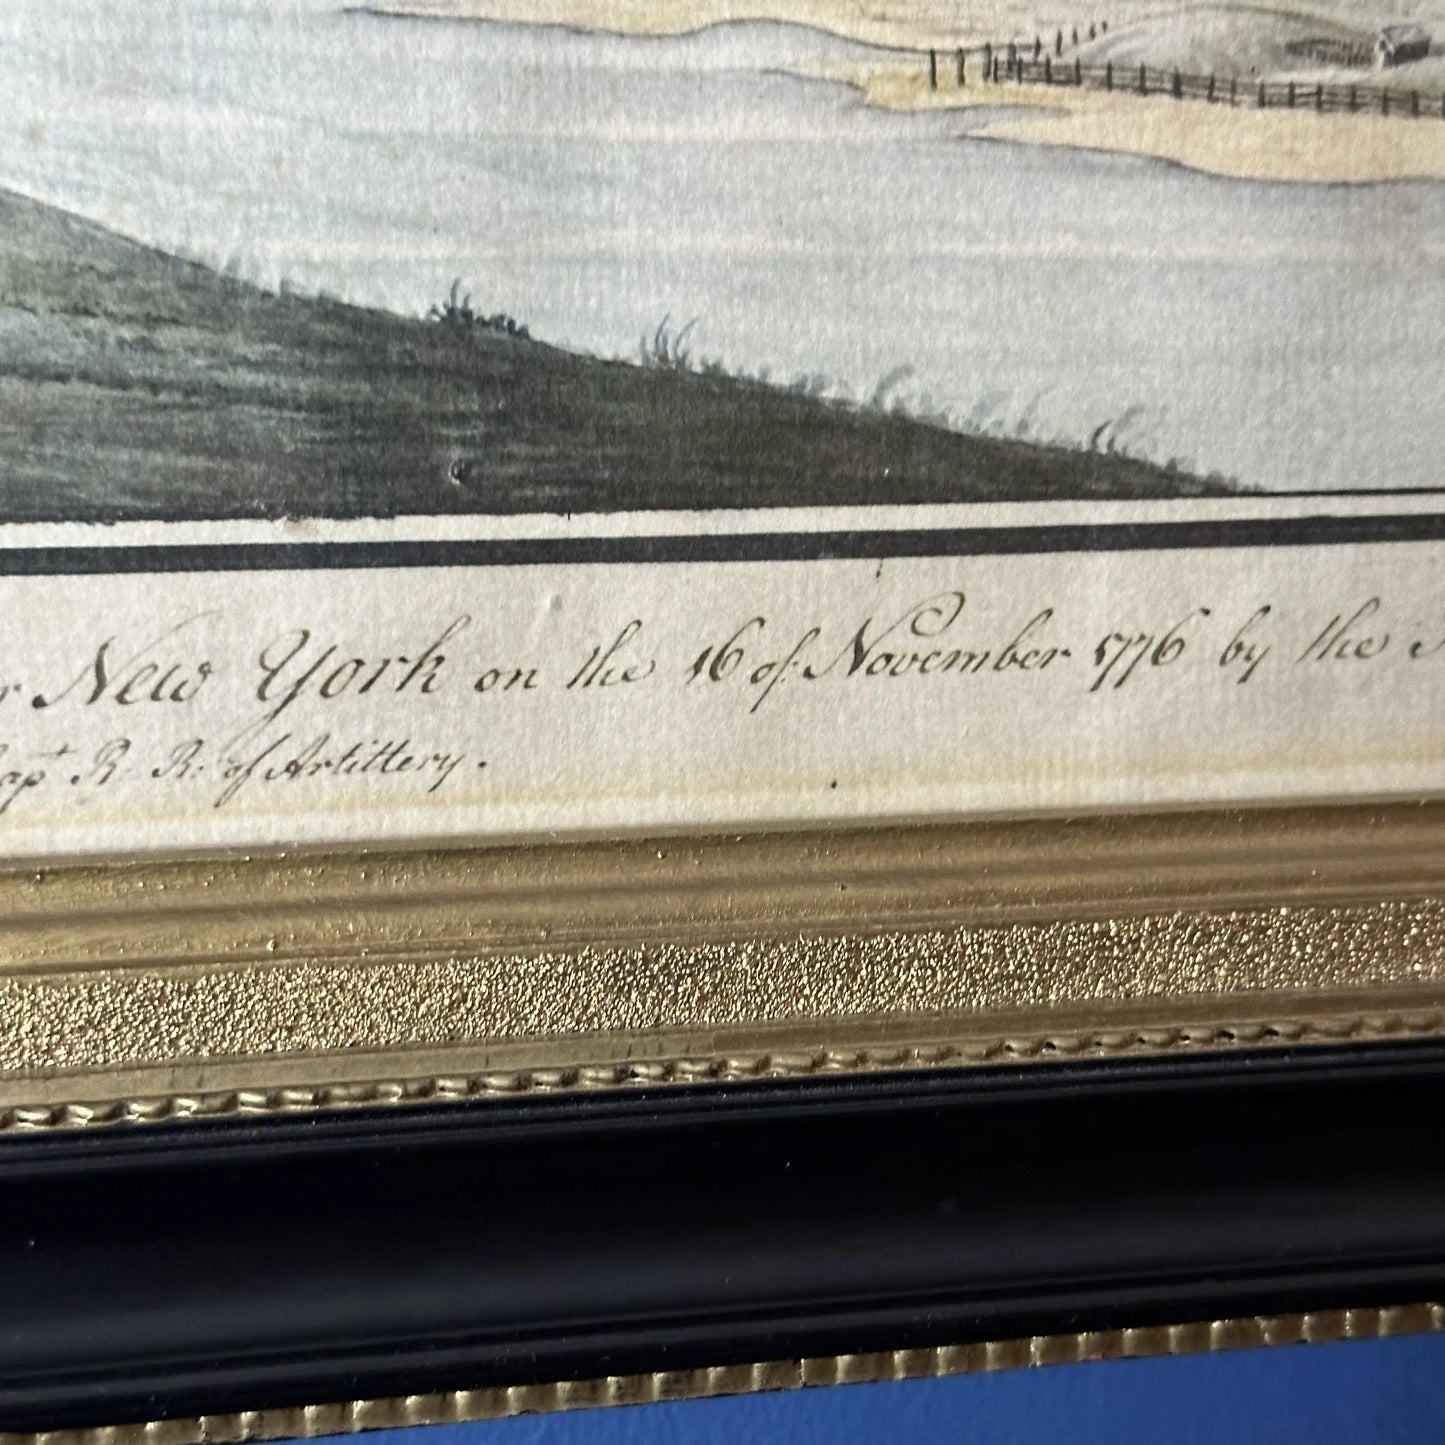 New York on the 16 of November 1776 by the
Capt R. R: of Artittery.